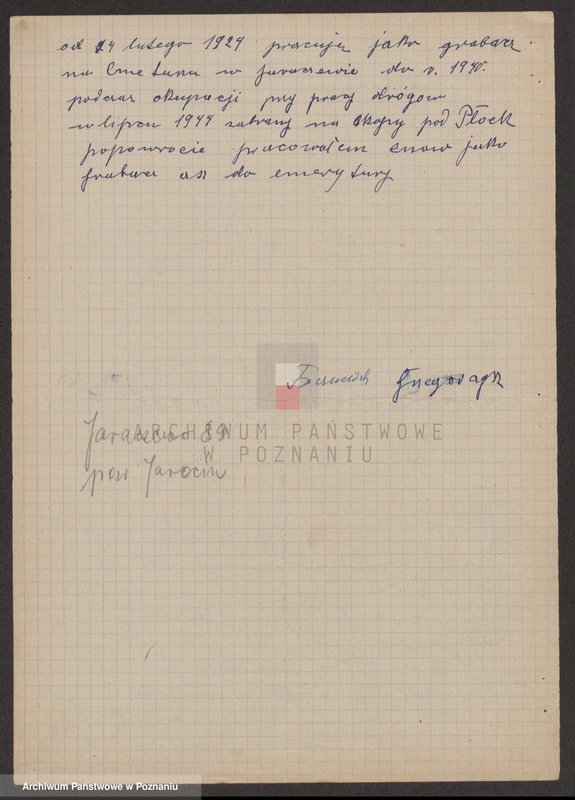 od 14 lutego 1924 pracuję jako grabarz
na Cmętarzu w Jaraczewie do r. 1940.
podczas okupacji przy pracy drógow
w lipcu 1944 zabrany na okopy pod Płock
popowrocie pracowałem znow jako
grabarz asz do emerytury
Franciszek Grzegorczyk
Jaraczewo 89
pow. Jarocin
ARCHIWUM PAŃSTWOWE
W POZNANIU
Archiwum Państwowe w Poznaniu